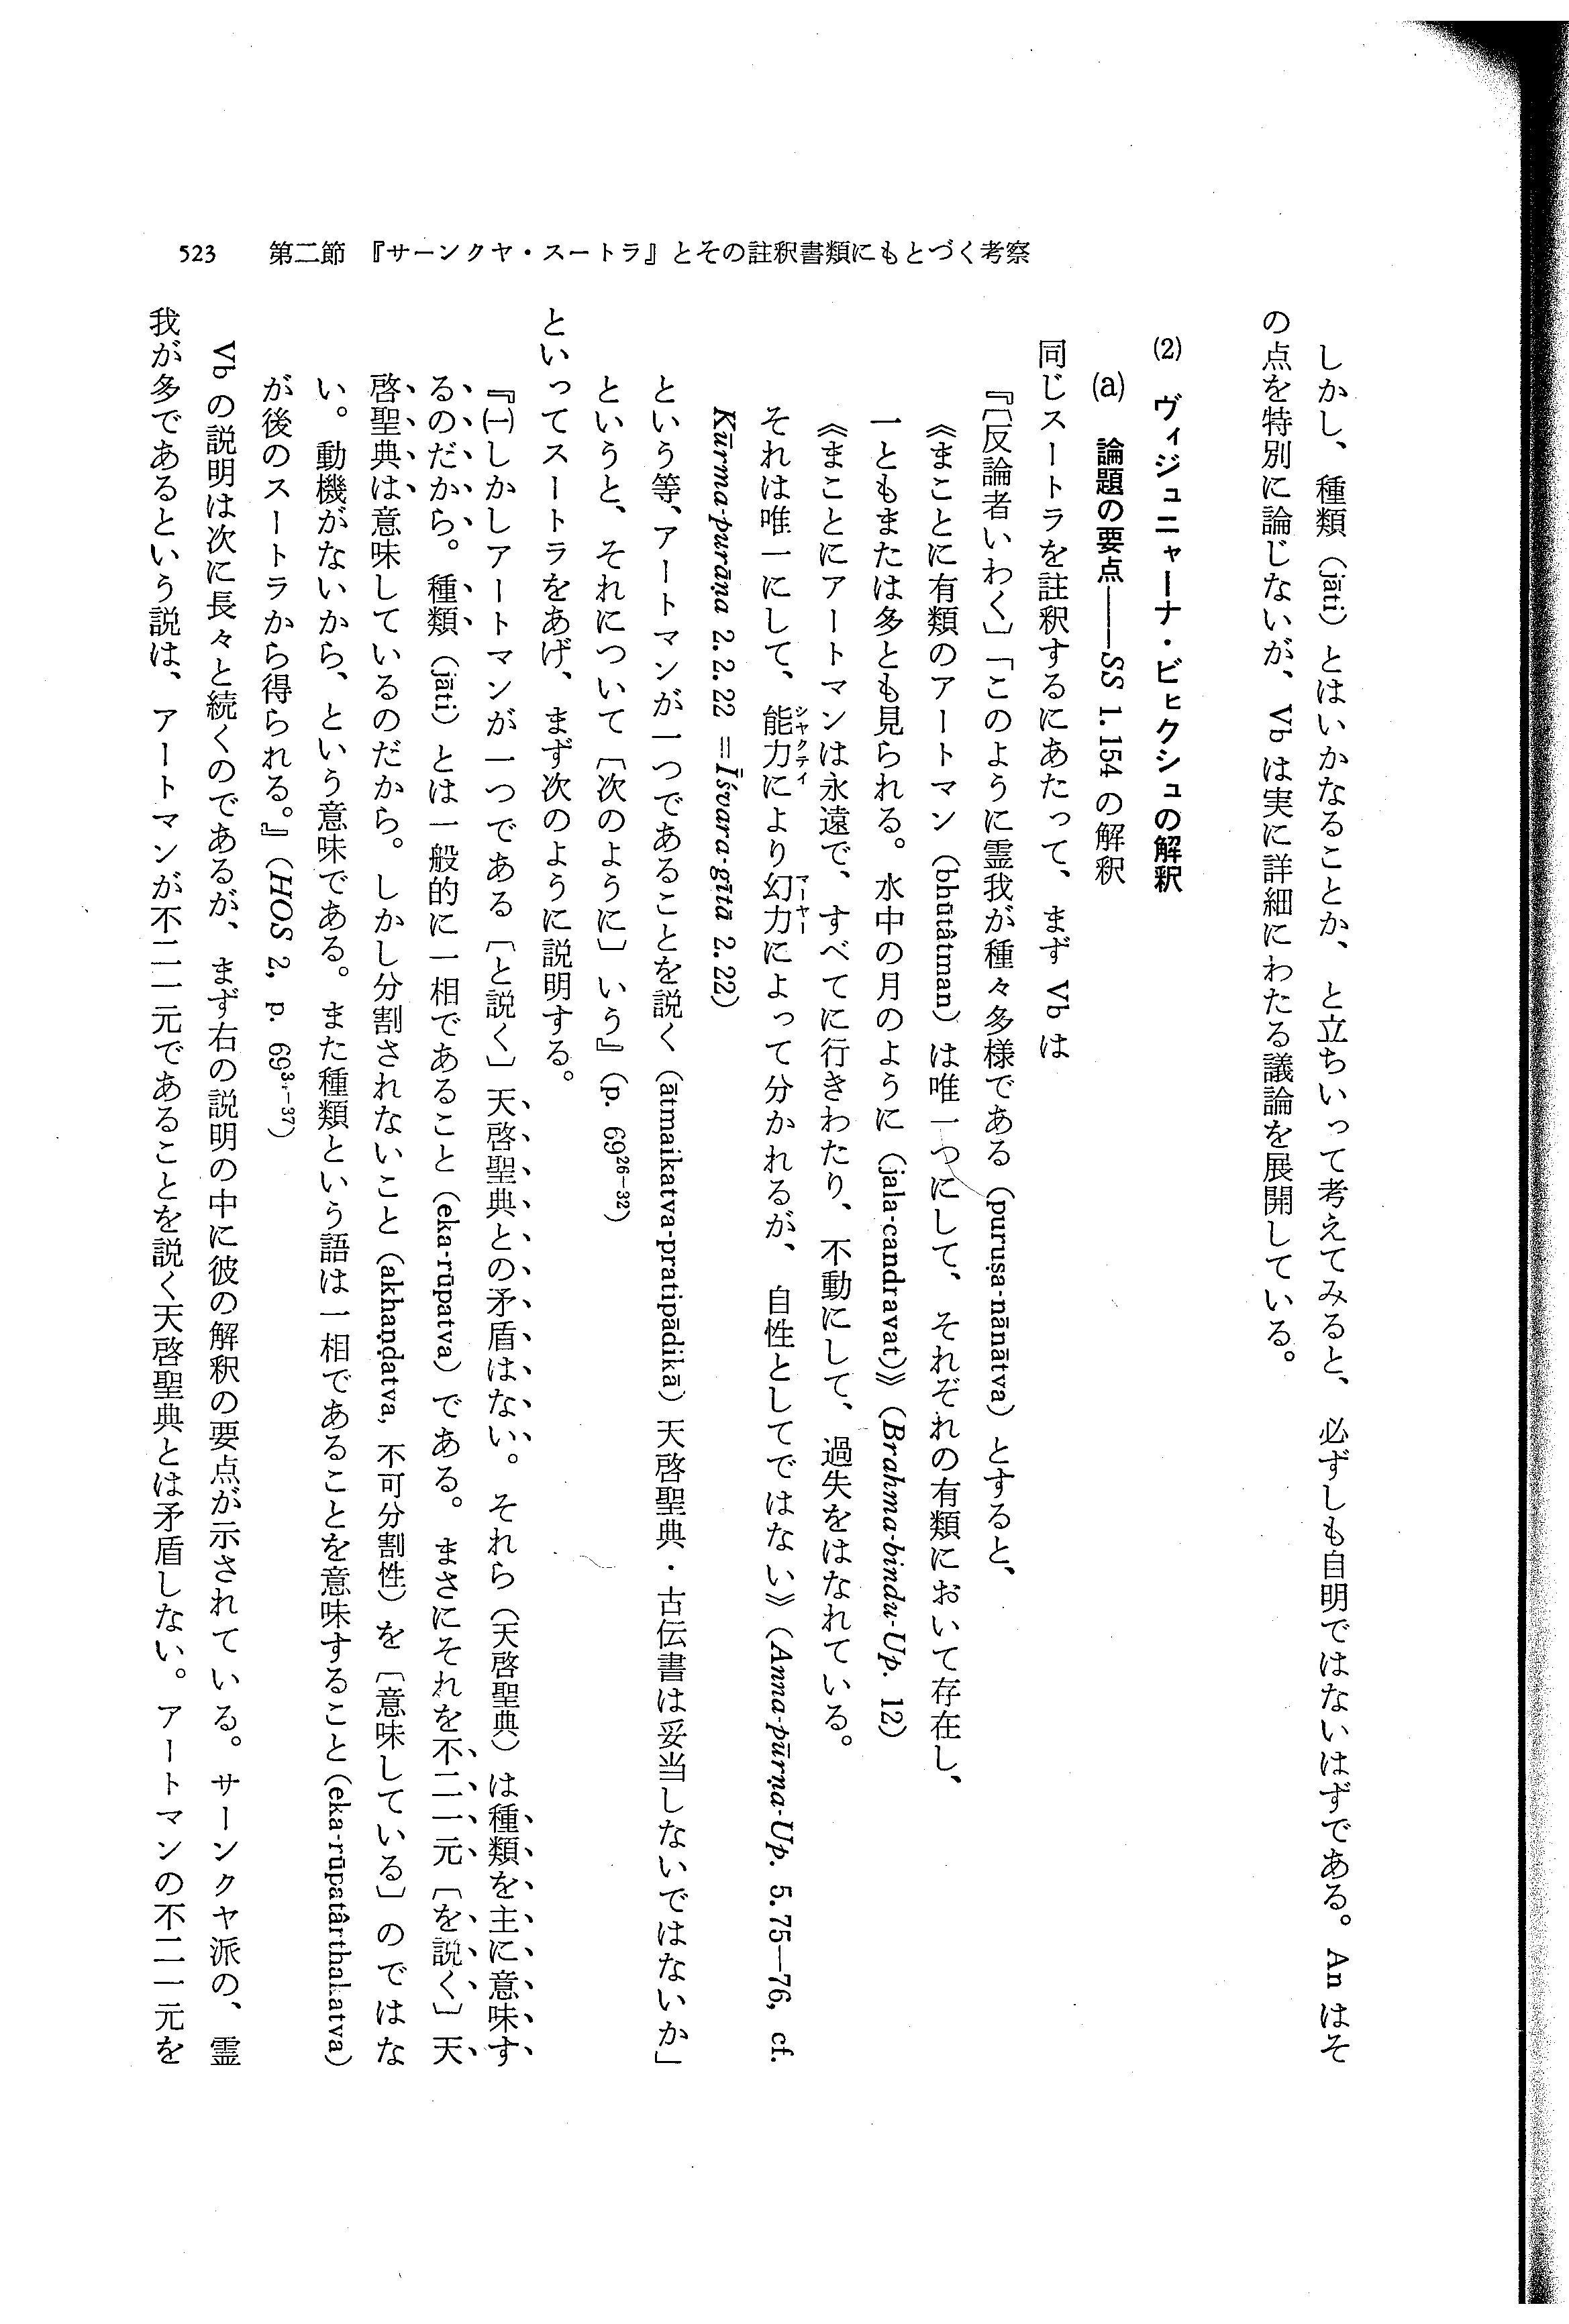 523　第二節　『サーンクヤ・スートラ』とその註釈書類にもとづく考察
しかし、種類（jāti）とはいかなることか、と立ちいって考えてみると、必ずしも自明ではないはずである。An はそ
の点を特別に論じないが、Vb は実に詳細にわたる議論を展開している。
(2)　ヴィジュニャーナ・ビヒクシュの解釈
(a)　論題の要点――SS 1.154 の解釈
同じスートラを註釈するにあたって、まず Vb は
『〔反論者いわく〕「このように霊我が種々多様である（puruṣa-nānātva）とすると、
《まことに有類のアートマン（bhūtâtman）は唯一つにして、それぞれの有類において存在し、
一ともまたは多とも見られる。水中の月のように（jala-candravat）》（Brahma-bindu-Up. 12）
《まことにアートマンは永遠で、すべてに行きわたり、不動にして、過失をはなれている。
それは唯一にして、能力シャクティにより幻力マーヤーによって分かれるが、自性としてではない》（Anna-pūrṇa-Up. 5.75—76, cf.
Kūrma-purāṇa 2.2.22 =Īśvara-gītā 2.22）
という等、アートマンが一つであることを説く（ātmaikatva-pratipādikā）天啓聖典・古伝書は妥当しないではないか」
というと、それについて〔次のように〕いう』（p. 69²⁶⁻³²）
といってスートラをあげ、まず次のように説明する。
『㈠しかしアートマンが一つである〔と説く〕天啓聖典との矛盾はない。それら（天啓聖典）は種類を主に意味す
るのだから。種類（jāti）とは一般的に一相であること（eka-rūpatva）である。まさにそれを不二一元〔を説く〕天
啓聖典は意味しているのだから。しかし分割されないこと（akhaṇḍatva, 不可分割性）を〔意味している〕のではな
い。動機がないから、という意味である。また種類という語は一相であることを意味すること（eka-rūpatârthakatva）
が後のスートラから得られる。』（HOS 2, p. 69
Vb の説明は次に長々と続くのであるが、まず右の説明の中に彼の解釈の要点が示されている。サーンクヤ派の、霊
我が多であるという説は、アートマンが不二一元であることを説く天啓聖典とは矛盾しない。アートマンの不二一元を